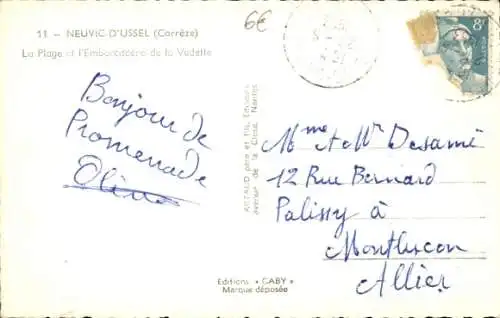 6€
11. - NEUVIC D'USSEL (Corrèze)
La Plage et l'Embarcadère de la Vedette
8F
Bonjour de
Promenade
ARTAUD père et fils, Éditeurs
avenue de la Close, Nantes
Mme et Mr Desamé
12 Rue Bernard
Palissy à
Montluçon
Allier
Editions « GABY »
Marque déposée